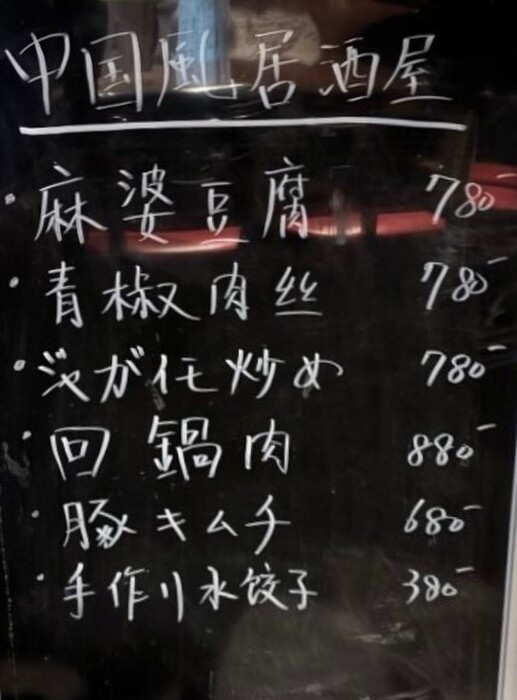 中国風居酒屋
・麻婆豆腐 780-
・青椒肉丝 780-
・ジャガイモ炒め 780-
・回鍋肉 880-
・豚キムチ 680-
・手作り水饺子 380-